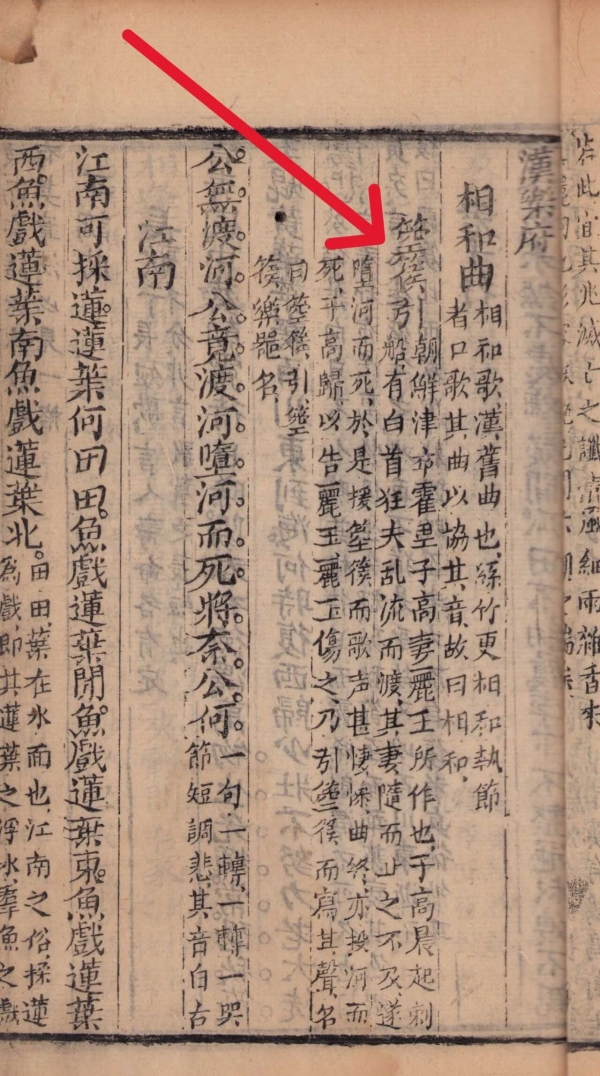 若此宜其兆滅亡之讖
風細雨雜香來
漢樂府
相和曲 相和歌漢舊曲也、絲竹更相和執節
者口歌其曲以協其音、故曰相和、
箜篌引 朝鮮津卒霍里子高妻麗玉所作也、子高晨起刺
船、有白首狂夫乱流而渡、其妻隨而止之不及、遂
墮河而死、於是援箜篌而歌声甚悽慘曲終、亦投河而
死、子高歸、以告麗玉、麗玉傷之、乃引箜篌而寫其聲、名
曰箜篌引、箜
篌樂噐名
公無渡河。公竟渡河。墮河而死。將奈公何。 一句一轉、一轉一哭
節短調悲、其音自古
江南
江南可採蓮。蓮葉何田田。魚戲蓮葉間。魚戲蓮葉東。魚戲蓮葉
西。魚戲蓮葉南。魚戲蓮葉北。 田田、葉在水面也、江南之俗、採蓮
為戲、即其蓮葉之浮水、羣魚之戲